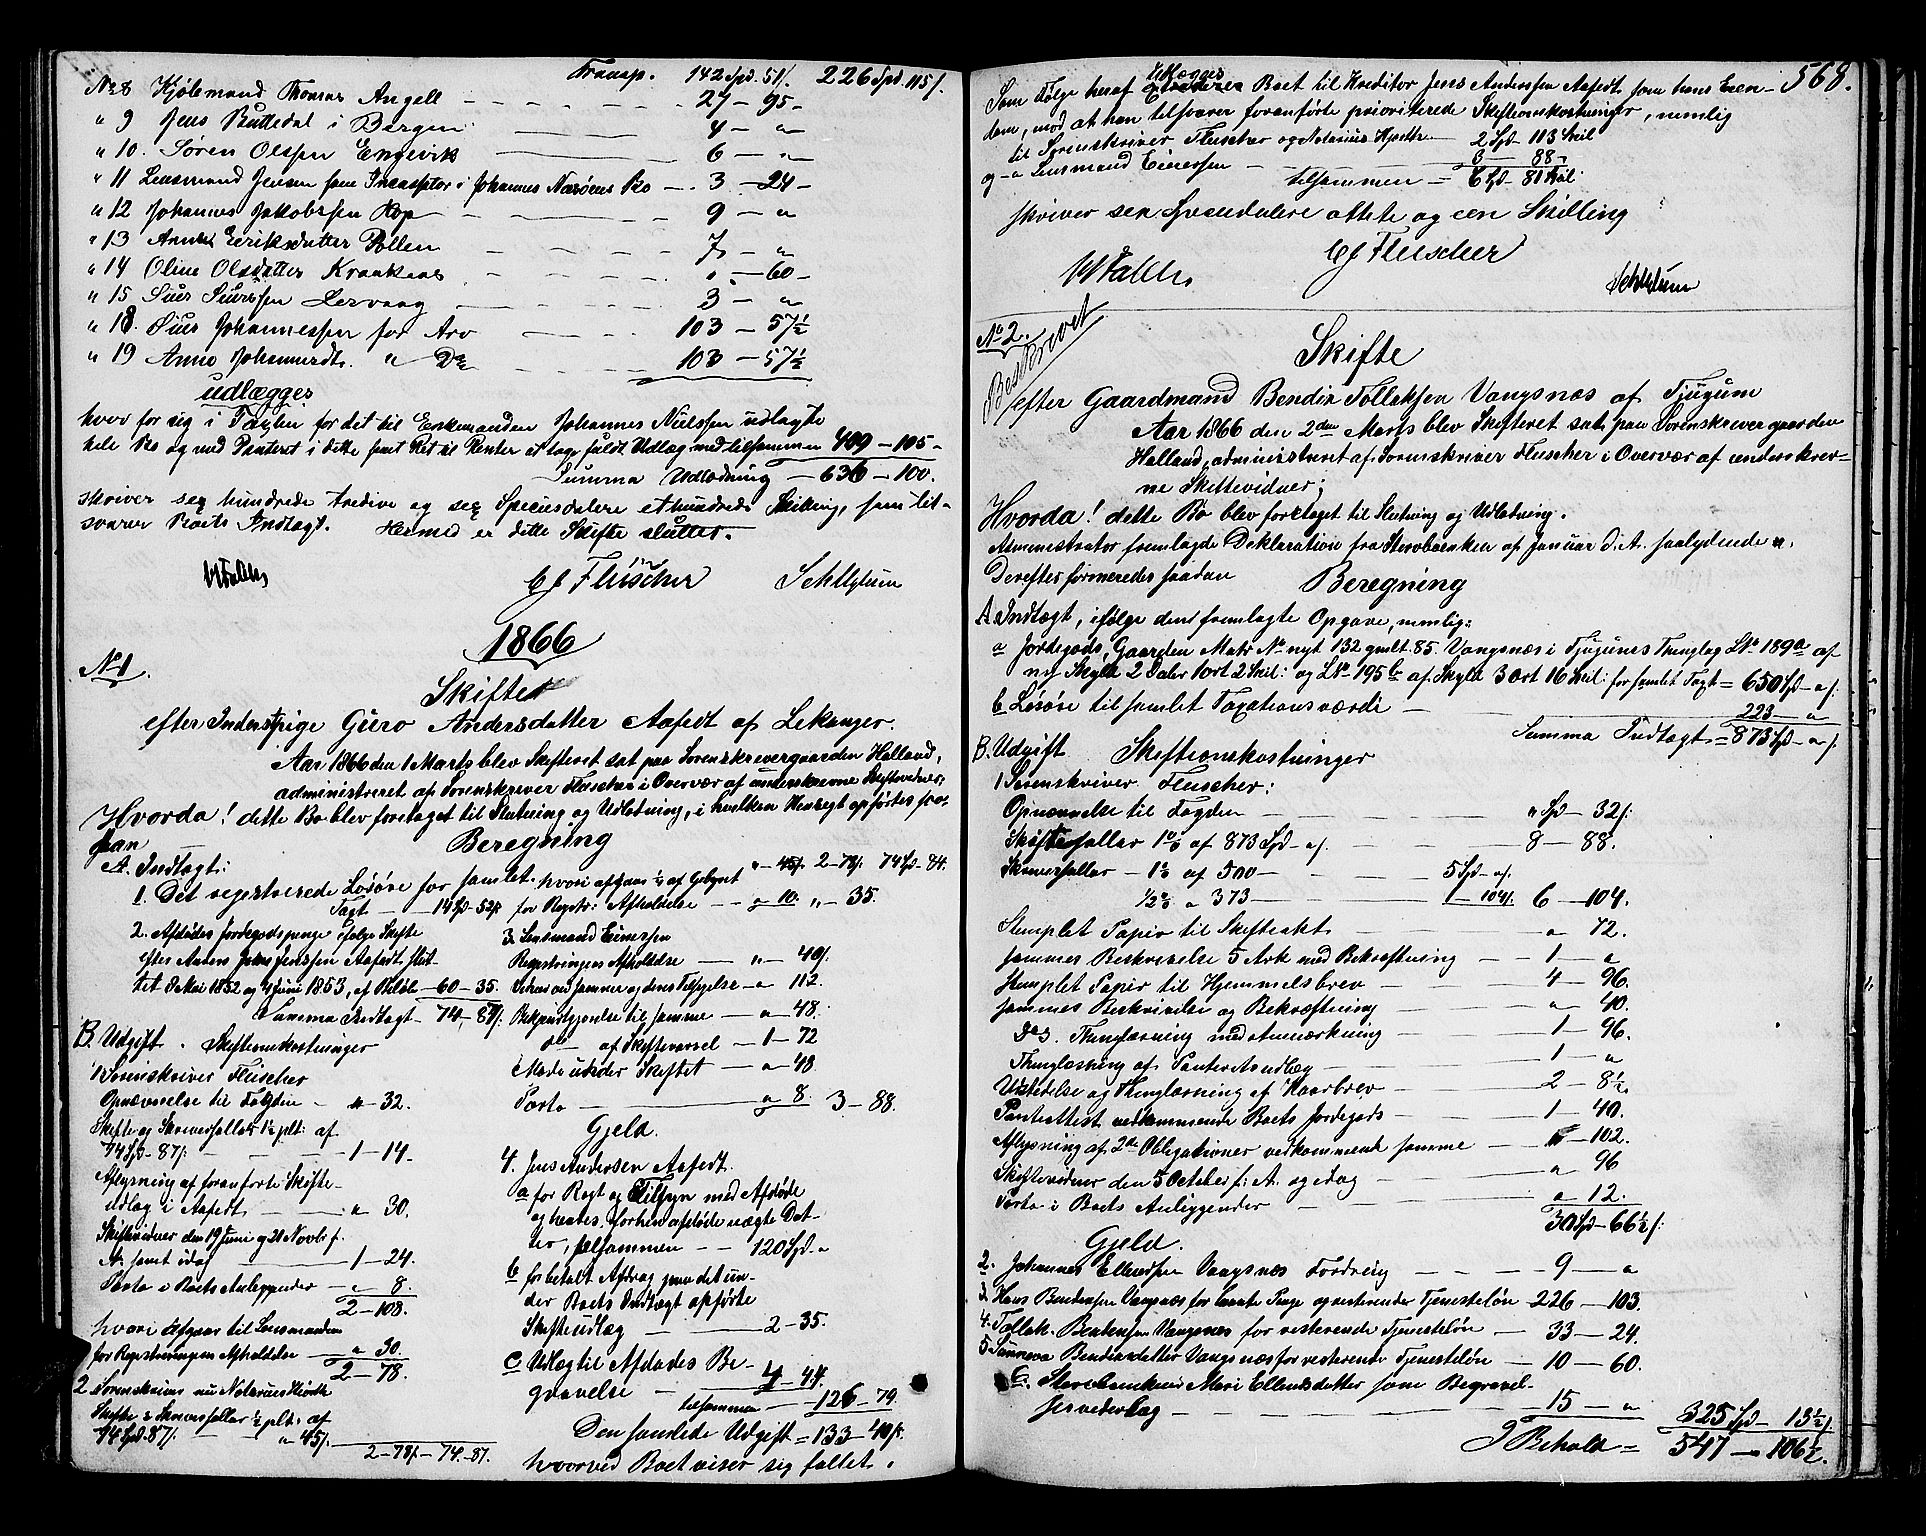 Transp. 142 Spd. 51/. 226 Spd 115/.
No 8 Kjøbmand Thomas Angell - - - - 27 - 95 -
" 9 Jens Buttedal i Bergen - - - 4 - "
" 10. Søren Olssen Engevik - - - 6 - "
" 11 Lensmand Jensen som Incassator i Johannes Næsøens Bo - 3 - 24 -
" 12 Johannes Jakobssen Hop - - - 9 - "
" 13 Anna Eriksdatter Pollen - - - 7 - "
" 14 Oline Olsdatter Kraakenes - - - " - 60 -
" 15 Siur Siurssen Lervaag - - - 3 - "
" 18. Siur Johannessen for Arv - - - 103 - 57½
" 19 Anna Johannesdt. " Do - - - 103 - 57½
udlægges
hver for sig i Taxten for det til Enkemanden Johannes Nielssen udlagte
hele Bo og med Panteret i dette samt Ret til Renter et taget fuldt Udlæg med tilsammen 409 - 105 -
Summa Udlodning - 636 - 100.
skriver sex hundrede tredive og sex Speciesdalere et hundrede Skilling, som til-
svarer Boets Indtægt. Hermed er dette Skifte sluttet.
CJ Fleischer
1866
No 1.
Skifte
efter Inderstpige Guro Andersdatter Aafedt af Lekanger.
Aar 1866 den 1 Marts blev Skifteret sat paa Sorenskrivergaarden Halland,
administreret af Sorenskriver Fleischer i Overvær af underskrevne Skiftevidner,
Hvorda! dette Bo blev foretaget til Slutning og Udlodning, i hvilken Hensegt opførtes saa-
dan Beregning
A. Indtægt:
1. Det registrerede Løsøre for samlet
Taxt - - 14 Spd - 52/.
2. Afdødes Jordegodspenge ifølge Skifte
efter Anders Jenssen Aafedt slut-
tet 8 Mai 1852 og 4 Juni 1853, af Beløb - 60 - 35.
Summa Indtægt - 74 - 87/.
B. Udgift. Skifteomkostninger
1 Sorenskriver Fleischer
Opnævnelse til Fogden - " - 32.
Skifte og Skriversallar 1½ plt: af
74 Spd - 87/. - - - 1 - 14.
Aflysning af foranførte Skifte-
udlæg i Aafedt - - - " 30.
Skiftevidner den 19 Juni og 21 Novbr f.
A. samt idag - - 1 - 24.
Porto i Boets Anliggender - " 8.
2 - 108.
hvori Afgaar til Lensmanden
for Registreringens Afholdelse - - " 30.
2 - 78.
2 Sorenskriver nu Notarius Hjorth
Skifte & Skriversallar ½ plt: af
74 Spd. 87/. - " 45/.
2 - 78/. - 74. - 87.
" - 45/. 2 - 78/. 74 Spd - 87.
hvori afgaar ½ af Gebyret
for Registr: Afholdelse - - " 10. " - 35.
3. Lensmand Einersen
Registringens Afholdelse - - " - 40/.
Skrivervidner samme og dens Tilsyelse - " 112.
Bekjendtgjørelse til samme - " - 48.
do - af Skiftevarsel - 1 - 72
Møde under Skiftet - " - 48
Porto - - - " 8. 3 - 88.
Gjeld.
4. Jens Andersen Aafedt.
a for Røgt og Tilsyn med Afdøde
og hendes forhen afdøde uægte Dat-
ter, tilsammen - - 120 Spd - "
b for betalt Afdrag paa det un-
der Boets Indtægt opførte
Skifteudlæg - - 2 - 35.
c Udlæg til Afdødes Be-
gravelse - - 4 - 44.
tilsammen - 126 - 79.
Den samlede Udgift = 133 - 40/.
hvorved Boet viser sig fallit.
568.
Som Følge heraf udlægges Boet til Kreditor Jens Anderssen Aafedt som hans Eien-
dom, mod at han tilsvarer foranførte prioriterede Skifteomkostninger, nemlig
til Sorenskriver Fleischer og Notarius Hjorth - 2 Spd - 113 Skil
og - " Lensmand Einerssen - - 3 - 88 -
tilsammen = 6 Spd - 81 Skil
skriver sex Speciedalere ottite og een Skilling
CJ Fleischer
No 2.
Beskrevet
Skifte
efter Gaardmand Bendix Tollaksen Vangsnæs af Tjugum
Aar 1866 den 2den Marts blev Skifteret sat paa Sorenskrivergaarden
Halland, administreret af Sorenskriver Fleischer i Overvær af underskrev-
ne Skiftevidner;
Hvorda! dette Bo blev foretaget til Slutning og Udlodning.
Administrator fremlagde Deklaration fra Stervboenken af Januar d. A. saalydende ".
Derefter formeredes saadan Beregning
A. Indtægt, ifølge den fremlagte Opgave, nemlig:
a Jordegods, Gaarden Matr No nyt 132 gmlt. 85. Vangsnæs i Tjugums Thinglag LNo 189a af
ny Skyld 2 Daler 1 ort 2 Skil: og LNo 195b af Skyld 3 Ort 16 Skil: for samlet Taxt = 650 Spd - "/.
b Løsøre til samlet Taxationsværdi - - - 223 - "
Summa Indtægt = 873 Spd - "/.
B. Udgift Skifteomkostninger
1 Sorenskriver Fleischer:
Opnævnelse til Fogden - - - " Spd - 32/.
Skiftesallar 1% af 873 Spd - "/. - - - 8 - 88.
Skriversallar - 1% af 500 - - - 5 Spd - "/.
½% " 373 - - - 1 - 104/. 6 - 104.
Stemplet Papir til Skifteakt - - - " 72.
sammes Beskrivelse 5 Ark med Bekræftning - - 1 - "
Stemplet Papir til Hjemmelsbrev - - 4 - 96.
sammes Beskrivelse og Bekræftning - - " 40.
Do s. Thinglæsning med Anmærkning - - 1 - 96.
Thinglæsning af Panteretsudlæg - - 1 - "
Udstedelse og Thinglæsning af Kaarbrev - - 2 - 8½
Pantattest vedkommende Boets Jordegods - - 1 - 40.
Aflysning af 2de Obligationer vedkommende samme - - " - 102.
Skiftevidner den 5 October f. A. og idag - - " 96
Porto i Boets Anliggender - - " 12.
30 Spd - 66½/.
Gjeld.
2. Johannes Ellendsen Vangsnæs Fordring - - - 9 - "
3. Hans Bendixsen Vangsnæs for laante Penge og resterende Tjenesteløn - 226 - 103.
4. Tollak Bendixsen Vangsnæs for resterende Tjenesteløn - - 33 - 24.
5 Sunneva Bendixdatter Vangsnæs for resterende Tjenesteløn - 10 - 60.
6. Stervboenken Mari Ellendsdatter som Begravel-
sesvederlag - - - 15 - " 325 Spd - 13½/.
I Behold = 547 - 106½.